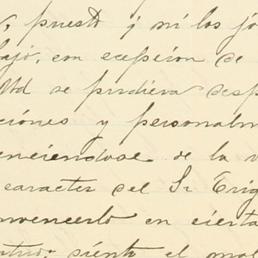 , puesto q ni los jó
bajo, con escepcion de
Md se pudiera desp
ciones y personalm
enciendose de la v
caracter del Sr Trig
onvencerlo en cierta
siente el mal